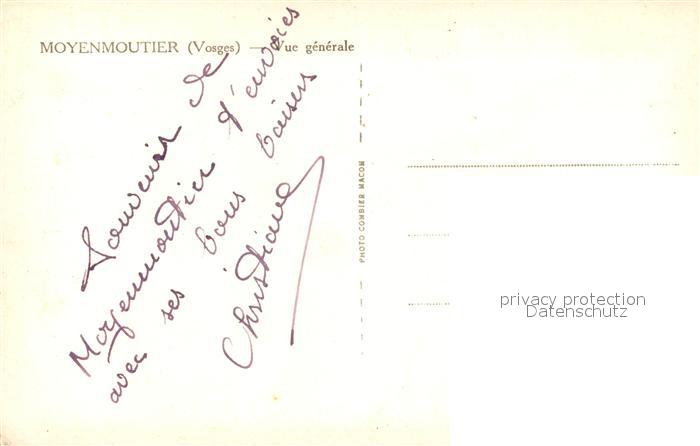 MOYENMOUTIER (Vosges) — Vue générale
Souvenir de
Moyenmoutier d'envoies
avec ses bons baisers
Christiane
PHOTO COMBIER MACON
privacy protection
Datenschutz